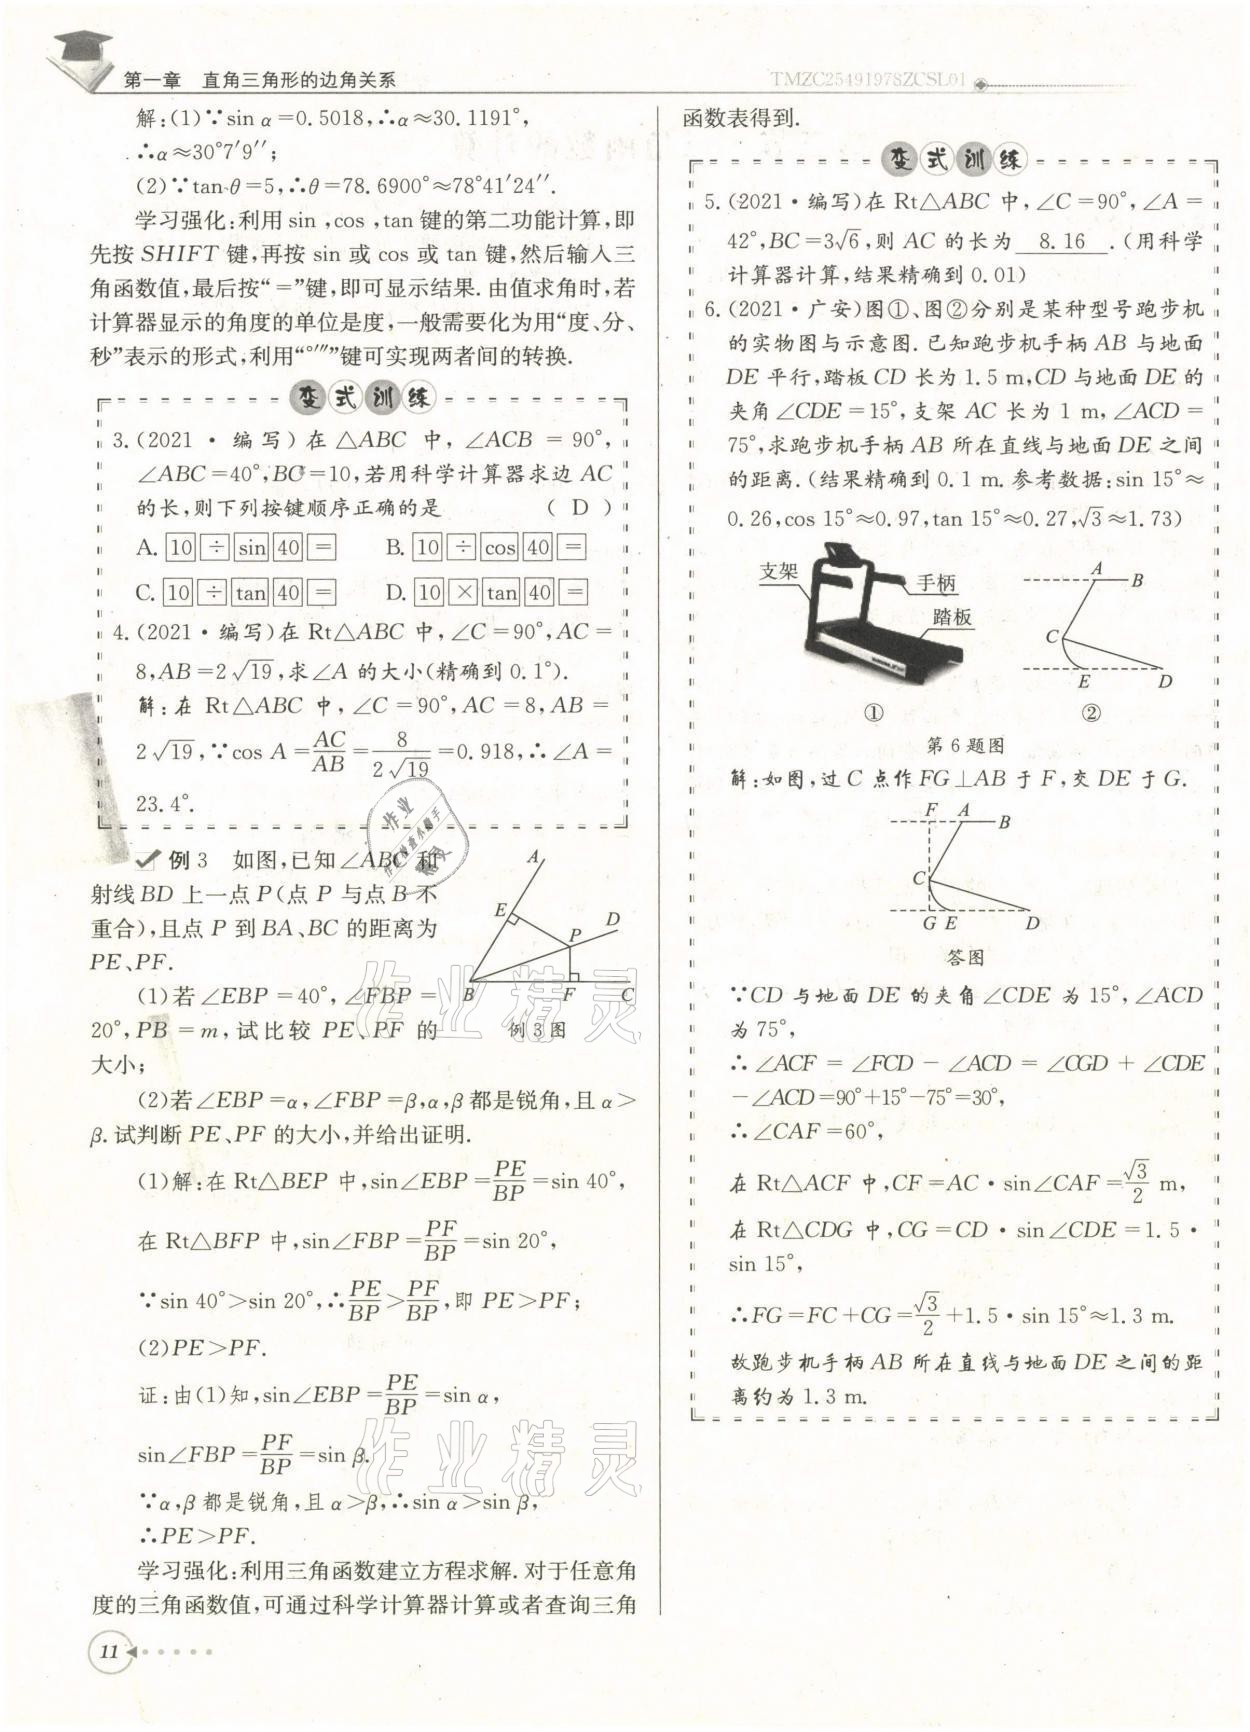 第一章　直角三角形的边角关系
TMZC25491978ZCSL01
解:(1)∵sin α=0.5018,∴α≈30.1191°,
∴α≈30°7′9″;
(2)∵tan θ=5,∴θ=78.6900°≈78°41′24″.
学习强化:利用 sin,cos,tan 键的第二功能计算,即
先按 SHIFT 键,再按 sin 或 cos 或 tan 键,然后输入三
角函数值,最后按“=”键,即可显示结果.由值求角时,若
计算器显示的角度的单位是度,一般需要化为用“度、分、
秒”表示的形式,利用“°′″”键可实现两者间的转换.
变式训练
3.(2021·编写)在△ABC 中,∠ACB=90°,
∠ABC=40°,BC=10,若用科学计算器求边 AC
的长,则下列按键顺序正确的是 ( D )
A. 10 ÷ sin 40 = B. 10 ÷ cos 40 =
C. 10 ÷ tan 40 = D. 10 × tan 40 =
4.(2021·编写)在 Rt△ABC 中,∠C=90°,AC=
8,AB=2√19,求∠A 的大小(精确到 0.1°).
解:在 Rt△ABC 中,∠C=90°,AC=8,AB=
2√19,∵cos A=AC/AB=8/(2√19)=0.918,∴∠A=
23.4°.
例 3　如图,已知∠ABC 和
射线 BD 上一点 P(点 P 与点 B 不
重合),且点 P 到 BA、BC 的距离为
PE、PF.
A
E
P
D
B
F
C
例 3 图
(1)若∠EBP=40°,∠FBP=
20°,PB=m,试比较 PE、PF 的
大小;
(2)若∠EBP=α,∠FBP=β,α,β都是锐角,且α>
β.试判断 PE、PF 的大小,并给出证明.
(1)解:在 Rt△BEP 中,sin∠EBP=PE/BP=sin 40°,
在 Rt△BFP 中,sin∠FBP=PF/BP=sin 20°,
∵sin 40°>sin 20°,∴PE/BP>PF/BP,即 PE>PF;
(2)PE>PF.
证:由(1)知,sin∠EBP=PE/BP=sin α,
sin∠FBP=PF/BP=sin β.
∵α,β都是锐角,且α>β,∴sin α>sin β,
∴PE>PF.
学习强化:利用三角函数建立方程求解.对于任意角
度的三角函数值,可通过科学计算器计算或者查询三角
11
函数表得到.
变式训练
5.(2021·编写)在 Rt△ABC 中,∠C=90°,∠A=
42°,BC=3√6,则 AC 的长为 8.16 .(用科学
计算器计算,结果精确到 0.01)
6.(2021·广安)图①、图②分别是某种型号跑步机
的实物图与示意图.已知跑步机手柄 AB 与地面
DE 平行,踏板 CD 长为 1.5 m,CD 与地面 DE 的
夹角∠CDE=15°,支架 AC 长为 1 m,∠ACD=
75°,求跑步机手柄 AB 所在直线与地面 DE 之间
的距离.(结果精确到 0.1 m.参考数据:sin 15°≈
0.26,cos 15°≈0.97,tan 15°≈0.27,√3≈1.73)
支架
手柄
踏板
①
A
B
C
E
D
②
第 6 题图
解:如图,过 C 点作 FG⊥AB 于 F,交 DE 于 G.
F A
B
C
G E D
答图
∵CD 与地面 DE 的夹角∠CDE 为 15°,∠ACD
为 75°,
∴∠ACF=∠FCD-∠ACD=∠CGD+∠CDE
-∠ACD=90°+15°-75°=30°,
∴∠CAF=60°,
在 Rt△ACF 中,CF=AC·sin∠CAF=√3/2 m,
在 Rt△CDG 中,CG=CD·sin∠CDE=1.5·
sin 15°,
∴FG=FC+CG=√3/2+1.5·sin 15°≈1.3 m.
故跑步机手柄 AB 所在直线与地面 DE 之间的距
离约为 1.3 m.
作业精灵
作业精灵